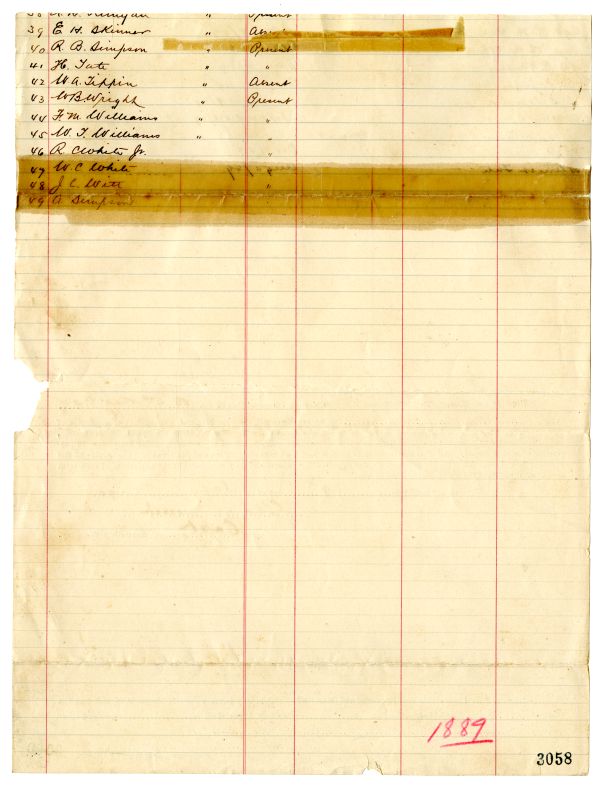 38
39 E. H. Skinner " Absent
40 R. B. Simpson " Present
41 H. Tate " "
42 W. A. Tippin " Absent
43 W B Wright " Present
44 F. M. Williams " "
45 W. T. Williams " "
46 R. C White Jr. "
47 W. C White "
48 J. C. Witt "
49 A Simpson "
1889
3058